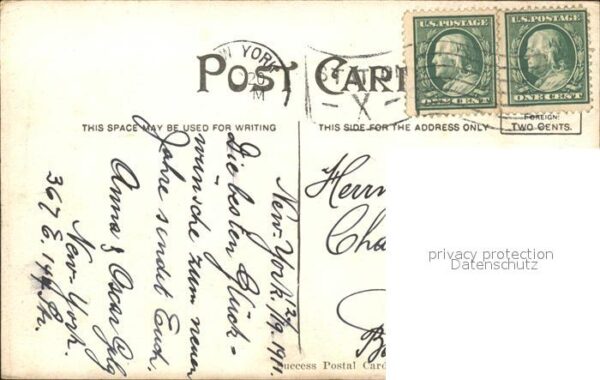 U.S. POSTAGE
ONE CENT
U.S. POSTAGE
ONE CENT
NEW YORK
STATION
X
POST CARD
FOREIGN:
TWO CENTS.
THIS SPACE MAY BE USED FOR WRITING
THIS SIDE FOR THE ADDRESS ONLY
New-York. 1911.
Die besten Glück-
wünsche zum neuen
Jahre sendet Euch.
Anna & Oscar
New-York.
367 E. Str.
Herrn
Cha
privacy protection
Datenschutz
Success Postal Card